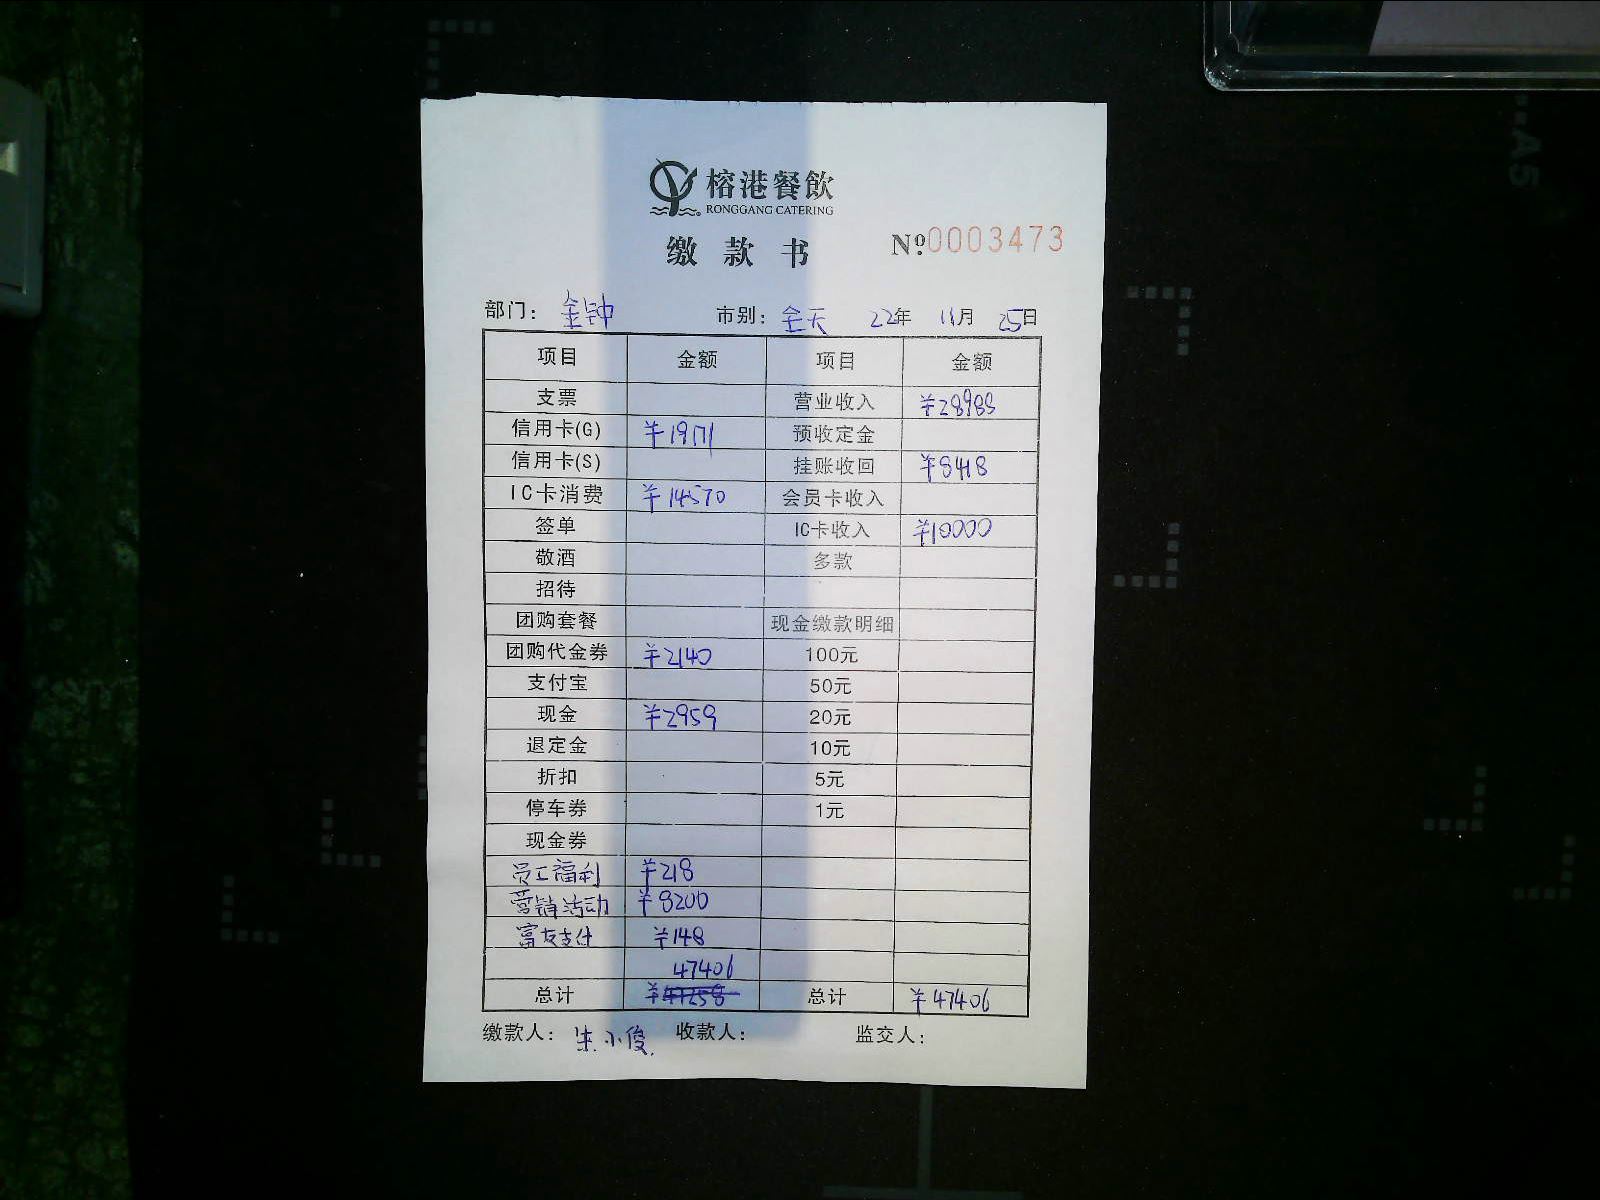 榕港餐飲
RONGGANG CATERING
缴款书
Nº.0003473
部门: 金钟 市别: 全天 22年 11月 25日
项目 金额 项目 金额
支票 营业收入 ¥28988
信用卡(G) ¥19171 预收定金
信用卡(S) 挂账收回 ¥8418
IC卡消费 ¥14570 会员卡收入
签单 IC卡收入 ¥10000
敬酒 多款
招待
团购套餐 现金缴款明细
团购代金券 ¥2140 100元
支付宝 50元
现金 ¥2959 20元
退定金 10元
折扣 5元
停车券 1元
现金券
员工福利 ¥218
营销活动 ¥8200
富友支付 ¥148
47406
总计 ¥47258 总计 ¥47406
缴款人: 朱小俊. 收款人: 监交人:
A5